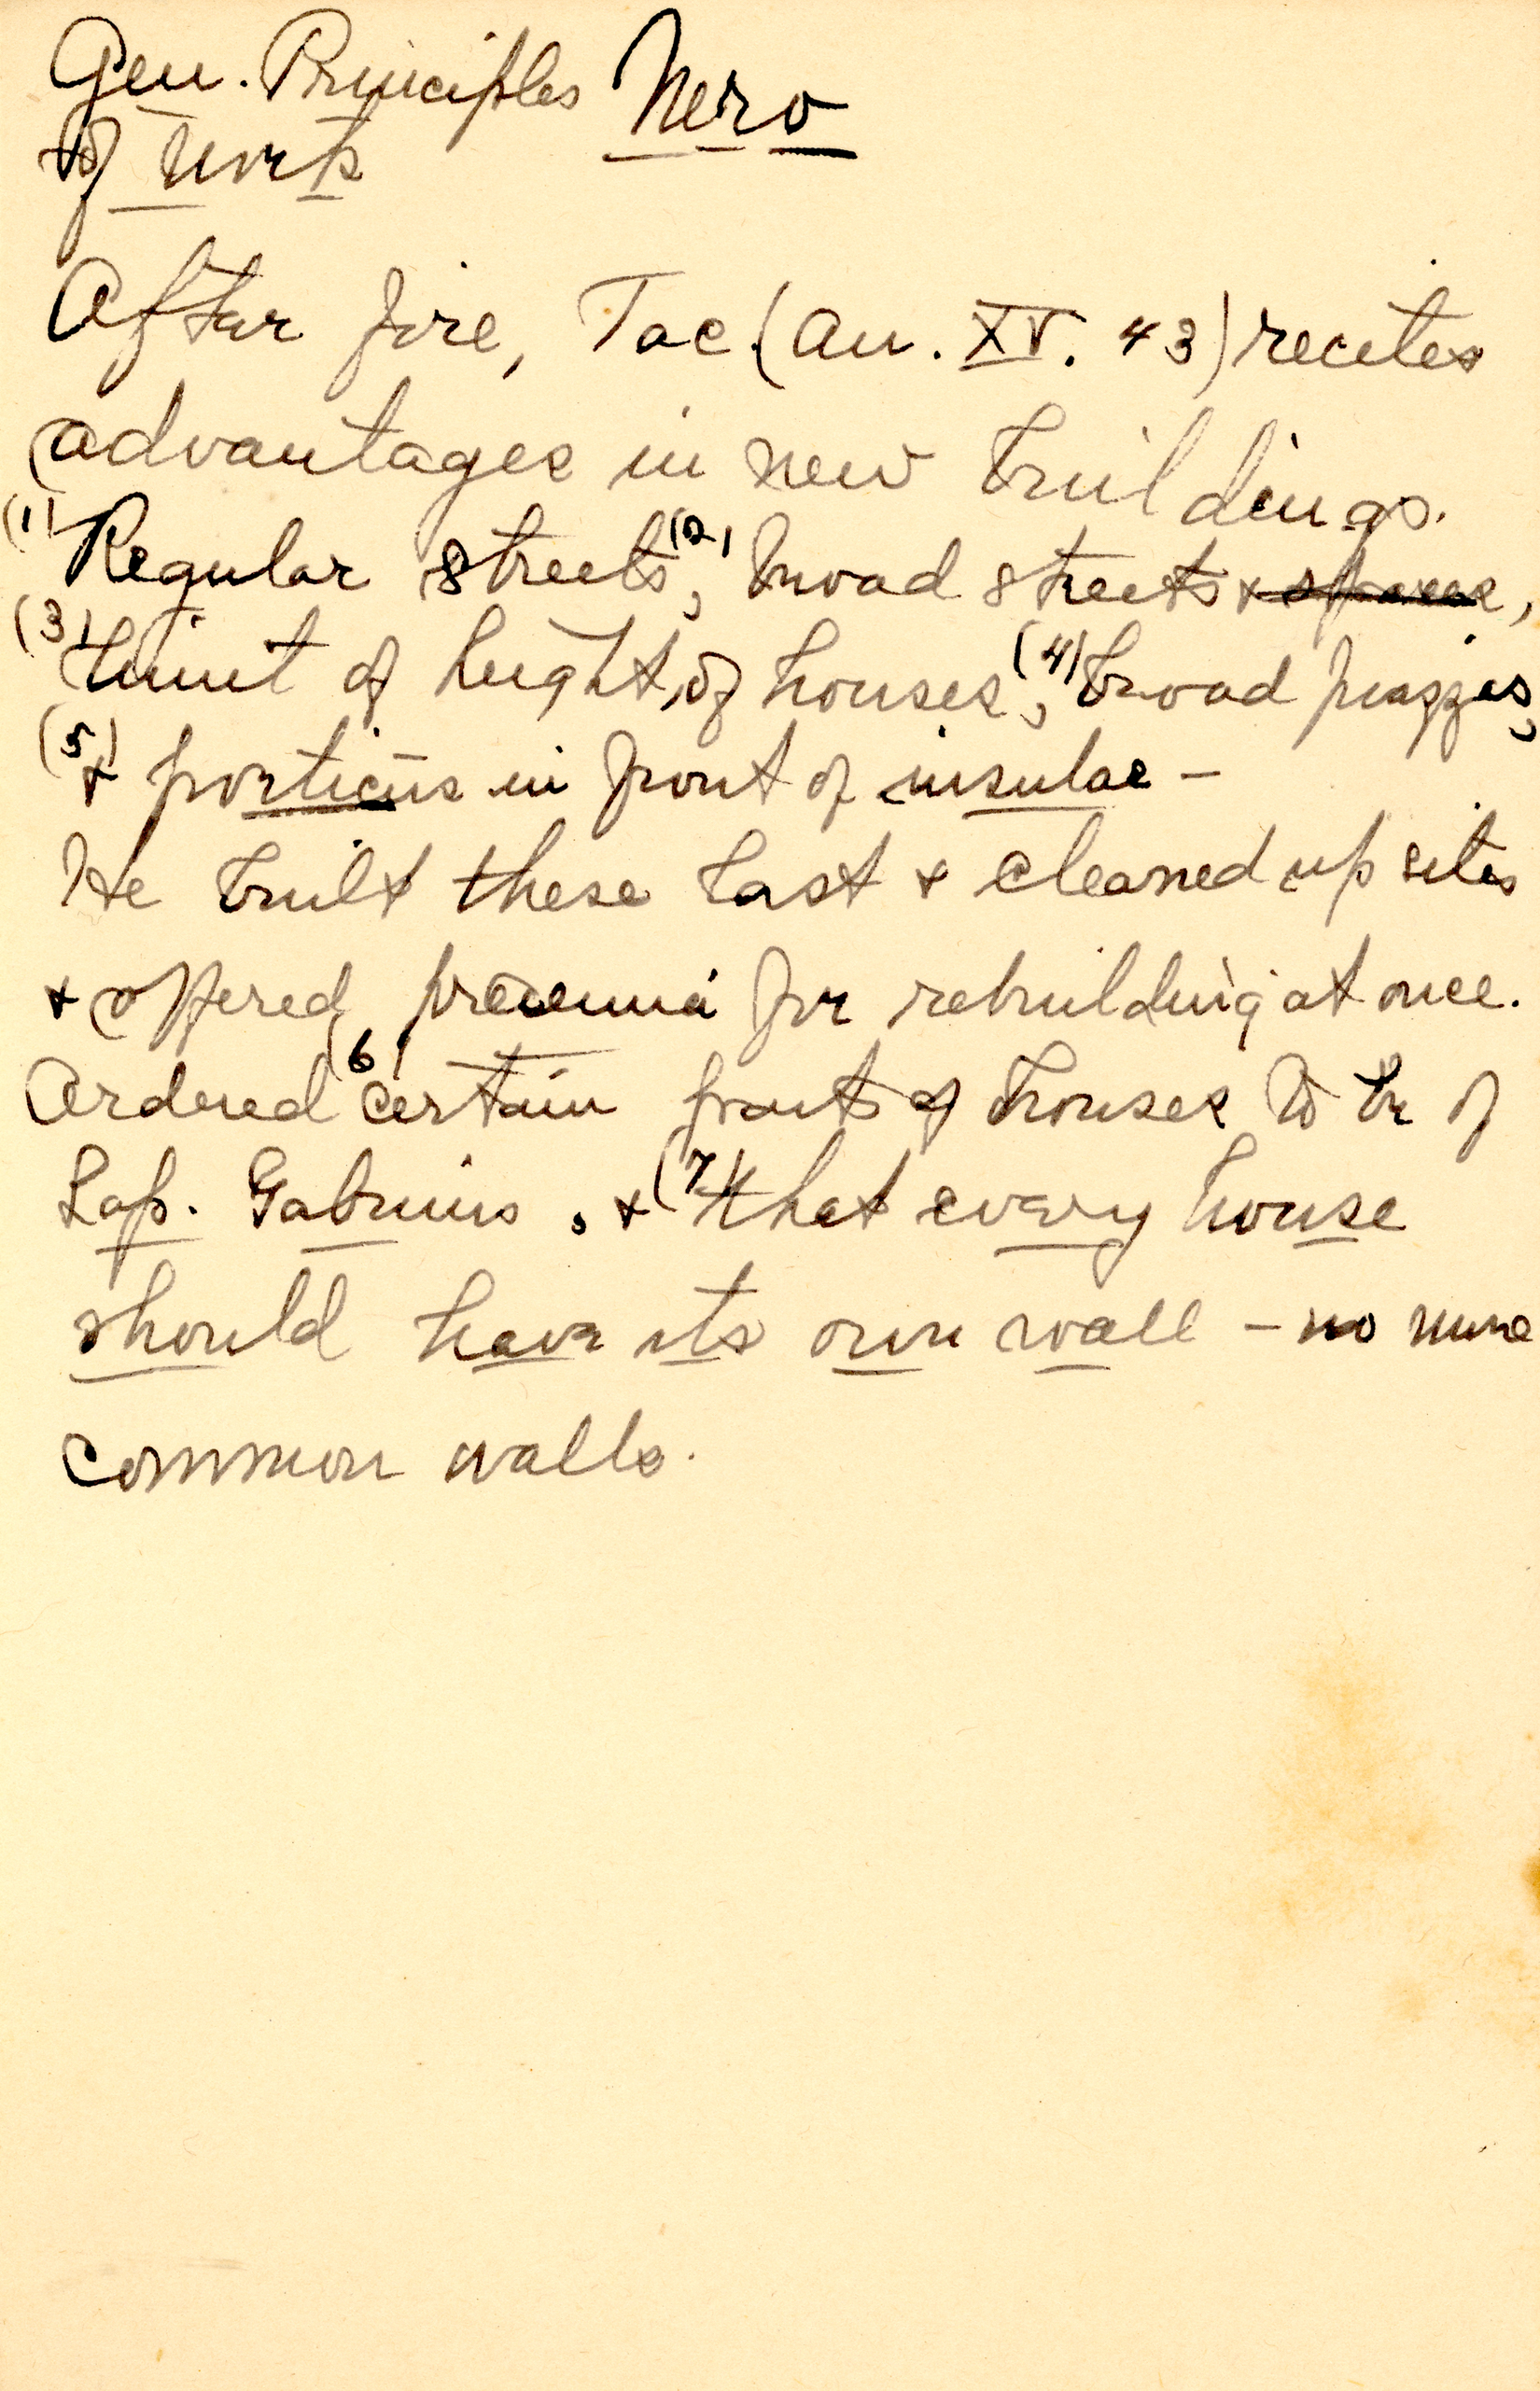 Gen. Principles Nero
of work
After fire, Tac. (An. XV. 43) recites
advantages in new buildings.
(1) Regular streets, (2) broad streets & spaces,
(3) limit of height, of houses, (4) broad piazzas,
(5) & porticus in front of insulae –
He built these last & cleaned up sites
& offered premia for rebuilding at once.
Ordered (6) certain parts of houses to be of
Lap. Gabinus, & (7) that every house
should have its own wall – no more
common walls.